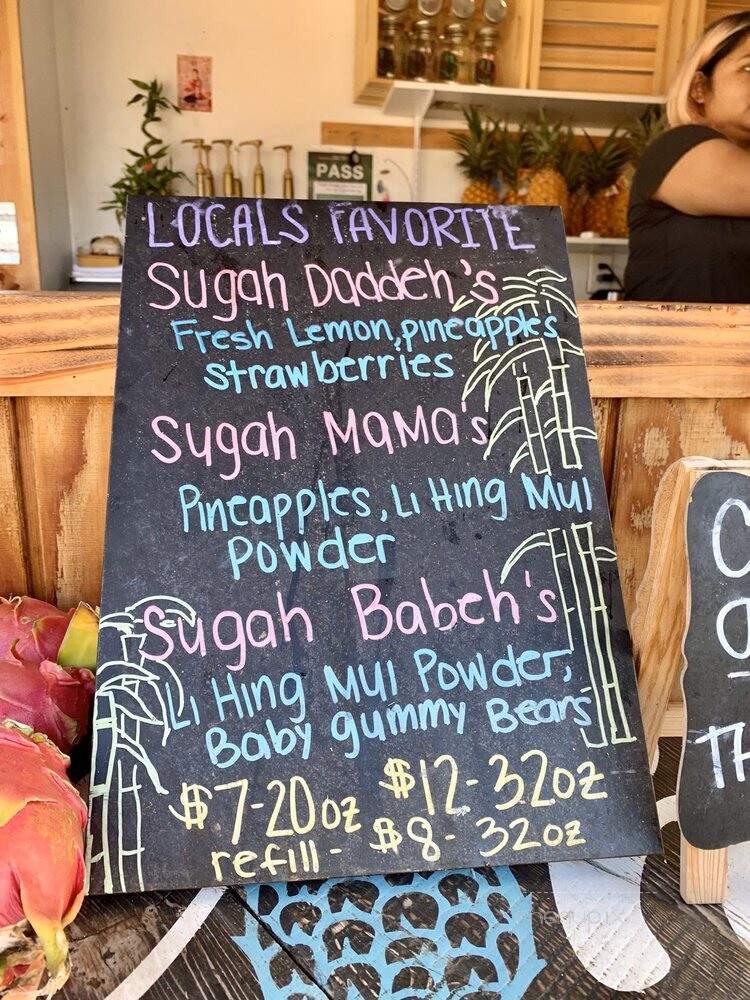 PASS
LOCALS FAVORITE
Sugah Daddeh's
Fresh Lemon, pineapples
strawberries
Sugah MaMa's
Pineapples, Li Hing Mui
Powder
Sugah Babeh's
Li Hing Mui Powder,
Baby gummy Bears
$7-20oz $12-32oz
refill - $8- 32oz